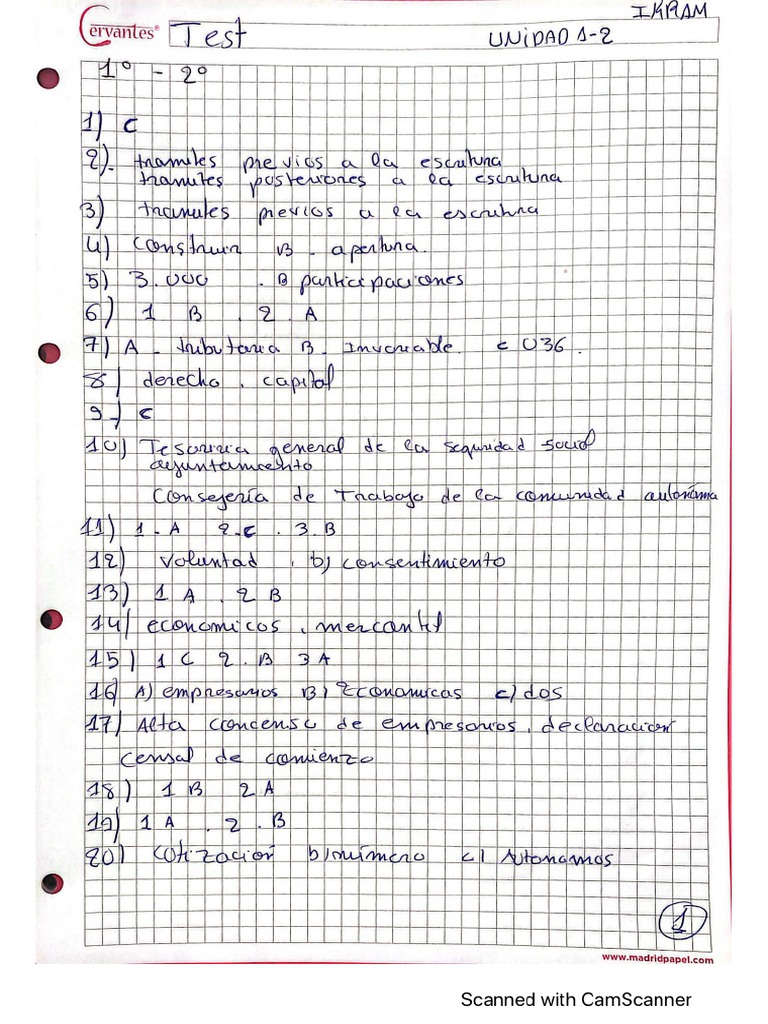 IKRAM
Cervantes® Test UNIDAD 1-2
1º - 2º
1) C
2). tramites previos a la escritura
tramites posteriores a la escritura
3) tramites previos a la escritura
4) Construir B - apertura.
5) 3.000 . B participaciones
6) 1 B . 2 . A
7) A - tributaria B - Invariable. c 036.
8) derecho . capital
9-) C
10) Tesoriria general de la seguridad social
ayuntamiento
Consejería de Trabajo de la comunidad autonóma
11) 1 - A 2 - C . 3. B
12) Voluntad . b) consentimiento
13) 1 A . 2 B
14) economicos . mercantil
15) 1 C 2 . B 3 A
16) A) empresarios B) Economicas c) dos
17) Alta concenso de empresarios, declaracion
Censal de comienzo
18) 1 B 2 A
19) 1 A . 2 . B
20) Cotizacion b) número c) Autonomos
1
www.madridpapel.com
Scanned with CamScanner